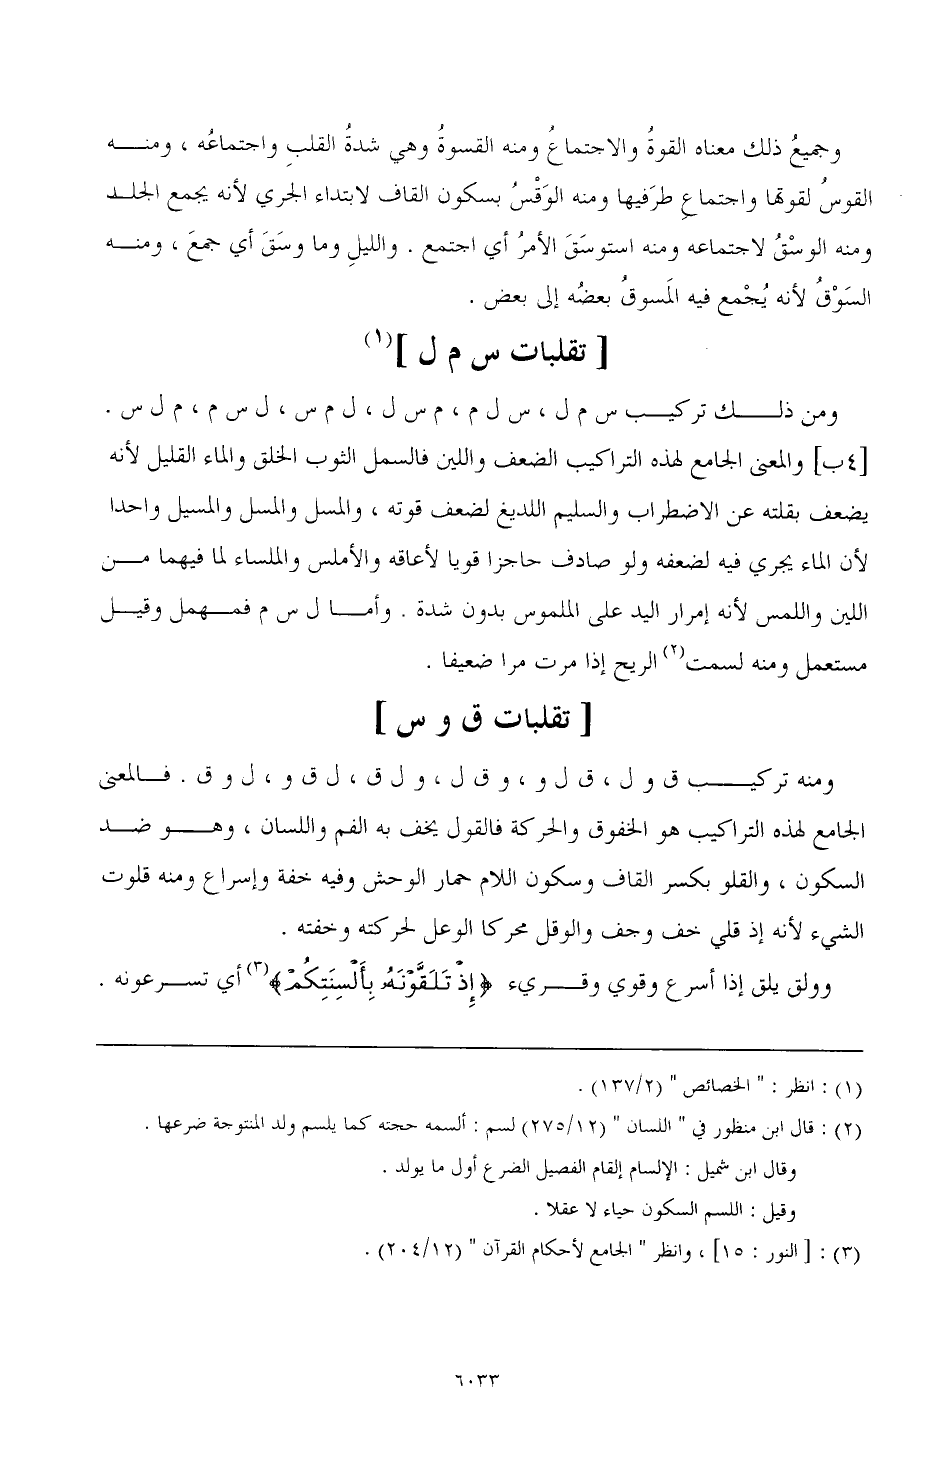 وجميعُ ذلك معناه القوةُ والاجتماعُ ومنه القسوةُ وهي شدةُ القلبِ واجتماعُه ، ومنه
القوسُ لقوتها واجتماعِ طرَفيها ومنه الوَقْسُ بسكون القاف لابتداء الجري لأنه يجمع الجلد
ومنه الوسْقُ لاجتماعه ومنه استوسَقَ الأمرُ أي اجتمع . والليلِ وما وسَقَ أي جمعَ ، ومنه
السَوْقُ لأنه يُجْمع فيه المَسوقُ بعضُه إلى بعض .
[ تقلبات س م ل ](١)
ومن ذلك تركيب س م ل ، س ل م ، م س ل ، ل م س ، ل س م ، م ل س .
[٤ب] والمعنى الجامع لهذه التراكيب الضعف واللين فالسمل الثوب الخلق والماء القليل لأنه
يضعف بقلته عن الاضطراب والسليم اللديغ لضعف قوته ، والمسل والمسل والمسيل واحدا
لأن الماء يجري فيه لضعفه ولو صادف حاجزا قويا لأعاقه والأملس والملساء لما فيهما من
اللين واللمس لأنه إمرار اليد على الملموس بدون شدة . وأما ل س م فمهمل وقيل
مستعمل ومنه لسمت(٢) الريح إذا مرت مرا ضعيفا .
[ تقلبات ق و س ]
ومنه تركيب ق و ل ، ق ل و ، و ق ل ، و ل ق ، ل ق و ، ل و ق . فالمعنى
الجامع لهذه التراكيب هو الخفوق والحركة فالقول يخف به الفم واللسان ، وهو ضد
السكون ، والقلو بكسر القاف وسكون اللام حمار الوحش وفيه خفة وإسراع ومنه قلوت
الشيء لأنه إذ قلي خف وجف والوقل محركا الوعل لحركته وخفته .
وولق يلق إذا أسرع وقوي وقريء ﴿إِذْ تَلَقَّوْنَهُ بِأَلْسِنَتِكُمْ﴾(٣) أي تسرعونه .
(١) : انظر : " الخصائص " (١٣٧/٢) .
(٢) : قال ابن منظور في " اللسان " (٢٧٥/١٢) لسم : ألسمه حجته كما يلسم ولد المنتوجة ضرعها .
وقال ابن شميل : الإلسام إلقام الفصيل الضرع أول ما يولد .
وقيل : اللسم السكون حياء لا عقلا .
(٣) : [ النور : ١٥] ، وانظر " الجامع لأحكام القرآن " (٢٠٤/١٢) .
٦٠٣٣